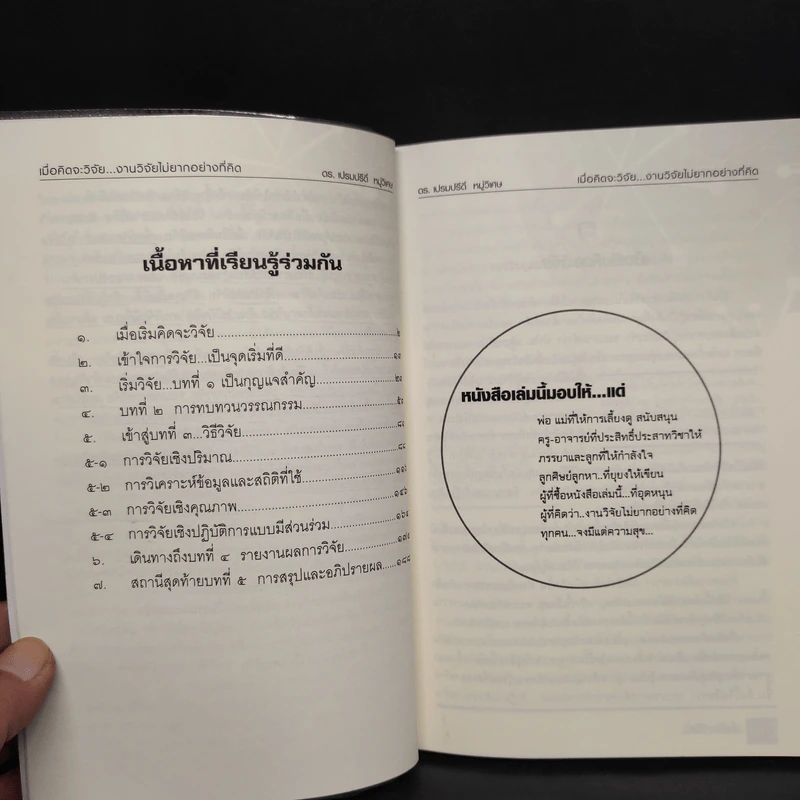 เมื่อคิดจะวิจัย...งานวิจัยไม่ยากอย่างที่คิด ดร. เปรมปรีดี หมู่วิเศษ
เนื้อหาที่เรียนรู้ร่วมกัน
๑. เมื่อเริ่มคิดจะวิจัย
๒. เข้าใจการวิจัย...เป็นจุดเริ่มที่ดี
๓. เริ่มวิจัย...บทที่ ๑ เป็นกุญแจสำคัญ
๔. บทที่ ๒ การทบทวนวรรณกรรม
๕. เข้าสู่บทที่ ๓...วิธีวิจัย
๕-๑ การวิจัยเชิงปริมาณ
๕-๒ การวิเคราะห์ข้อมูลและสถิติที่ใช้
๕-๓ การวิจัยเชิงคุณภาพ
๕-๔ การวิจัยเชิงปฏิบัติการแบบมีส่วนร่วม
๖. เดินทางถึงบทที่ ๔ รายงานผลการวิจัย
๗. สถานีสุดท้ายบทที่ ๕ การสรุปและอภิปรายผล
ดร. เปรมปรีดี หมู่วิเศษ เมื่อคิดจะวิจัย...งานวิจัยไม่ยากอย่างที่คิด
หนังสือเล่มนี้มอบให้...แด่
พ่อ แม่ที่ให้การเลี้ยงดู สนับสนุน
ครู-อาจารย์ที่ประสิทธิ์ประสาทวิชาให้
ภรรยาและลูกที่ให้กำลังใจ
ลูกศิษย์ลูกหา..ที่ยุยงให้เขียน
ผู้ที่ซื้อหนังสือเล่มนี้...ที่อุดหนุน
ผู้ที่คิดว่า..งานวิจัยไม่ยากอย่างที่คิด
ทุกคน...จงมีแต่ความสุข...